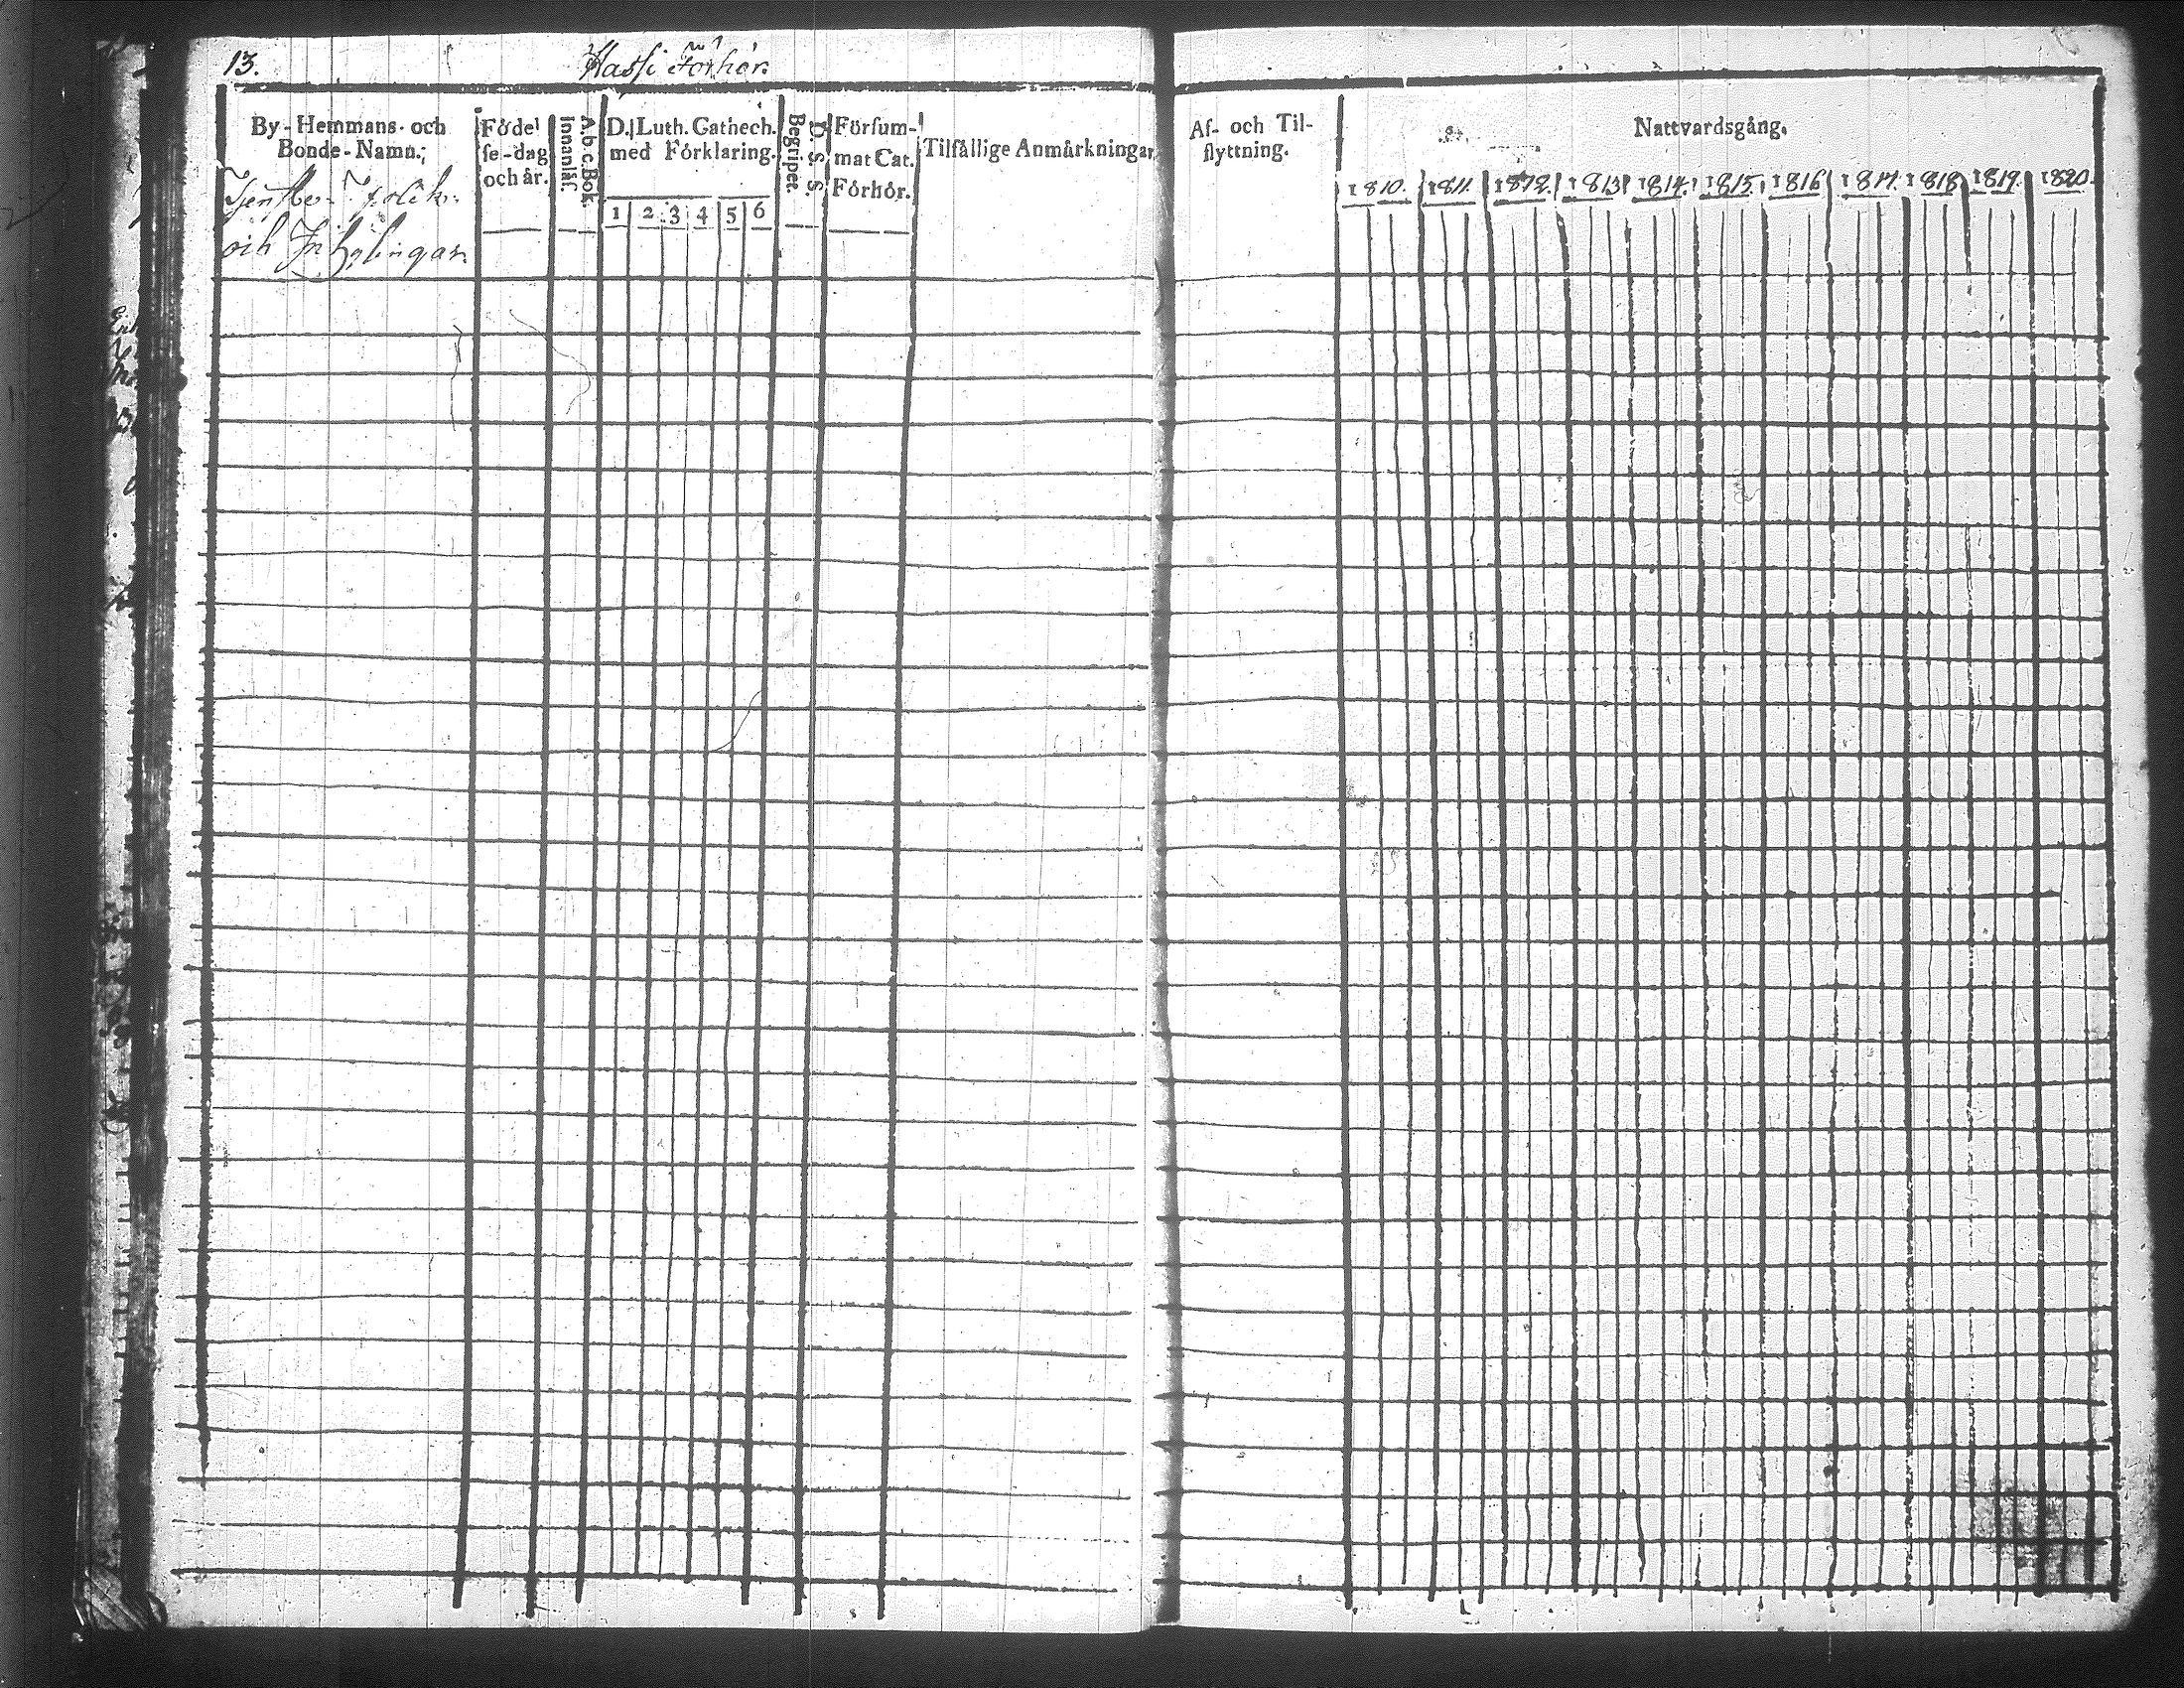 13.
Hassi Förhör.
By-Hemmans- och
Bonde-Namn.
Tjenste-Folck
och Inhylingar.
Födel
se-dag
och år.
A.b.c. Bok.
Innanläs.
D. Luth. Cathech.
med Förklaring.
1 2 3 4 5 6
D. S. S.
Begriper.
Försum-
mat Cat.
Förhör.
Tilfällige Anmärkningar.
Af- och Til-
flyttning.
Nattvardsgång.
1810. 1811. 1812. 1813 1814. 1815. 1816 1817. 1818 1819. 1820.